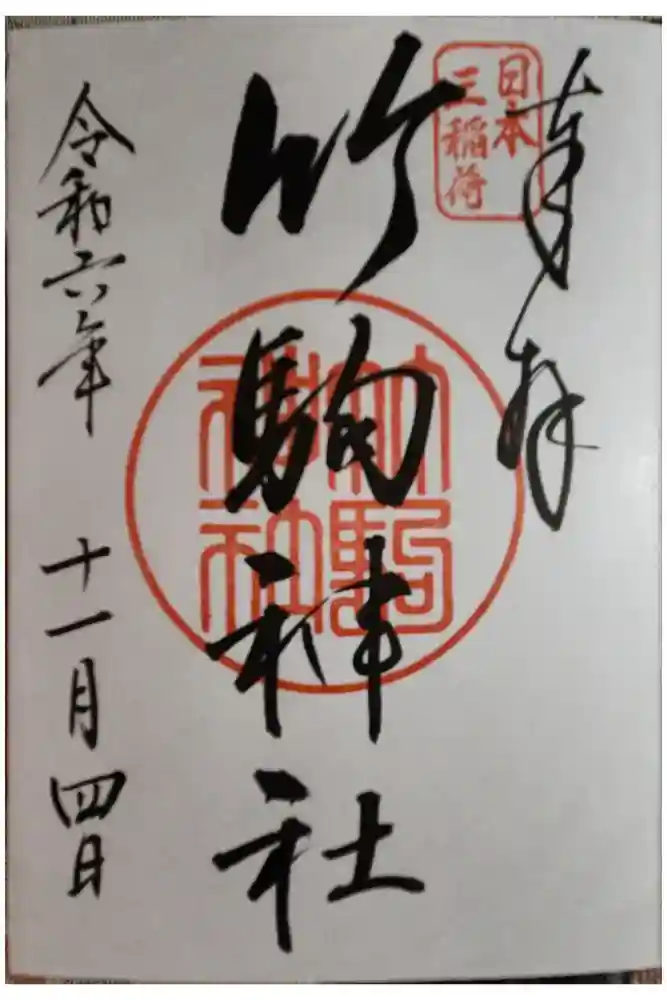 奉拝
日本
三稲荷
竹駒神社
竹駒
神社
令和六年 十一月四日